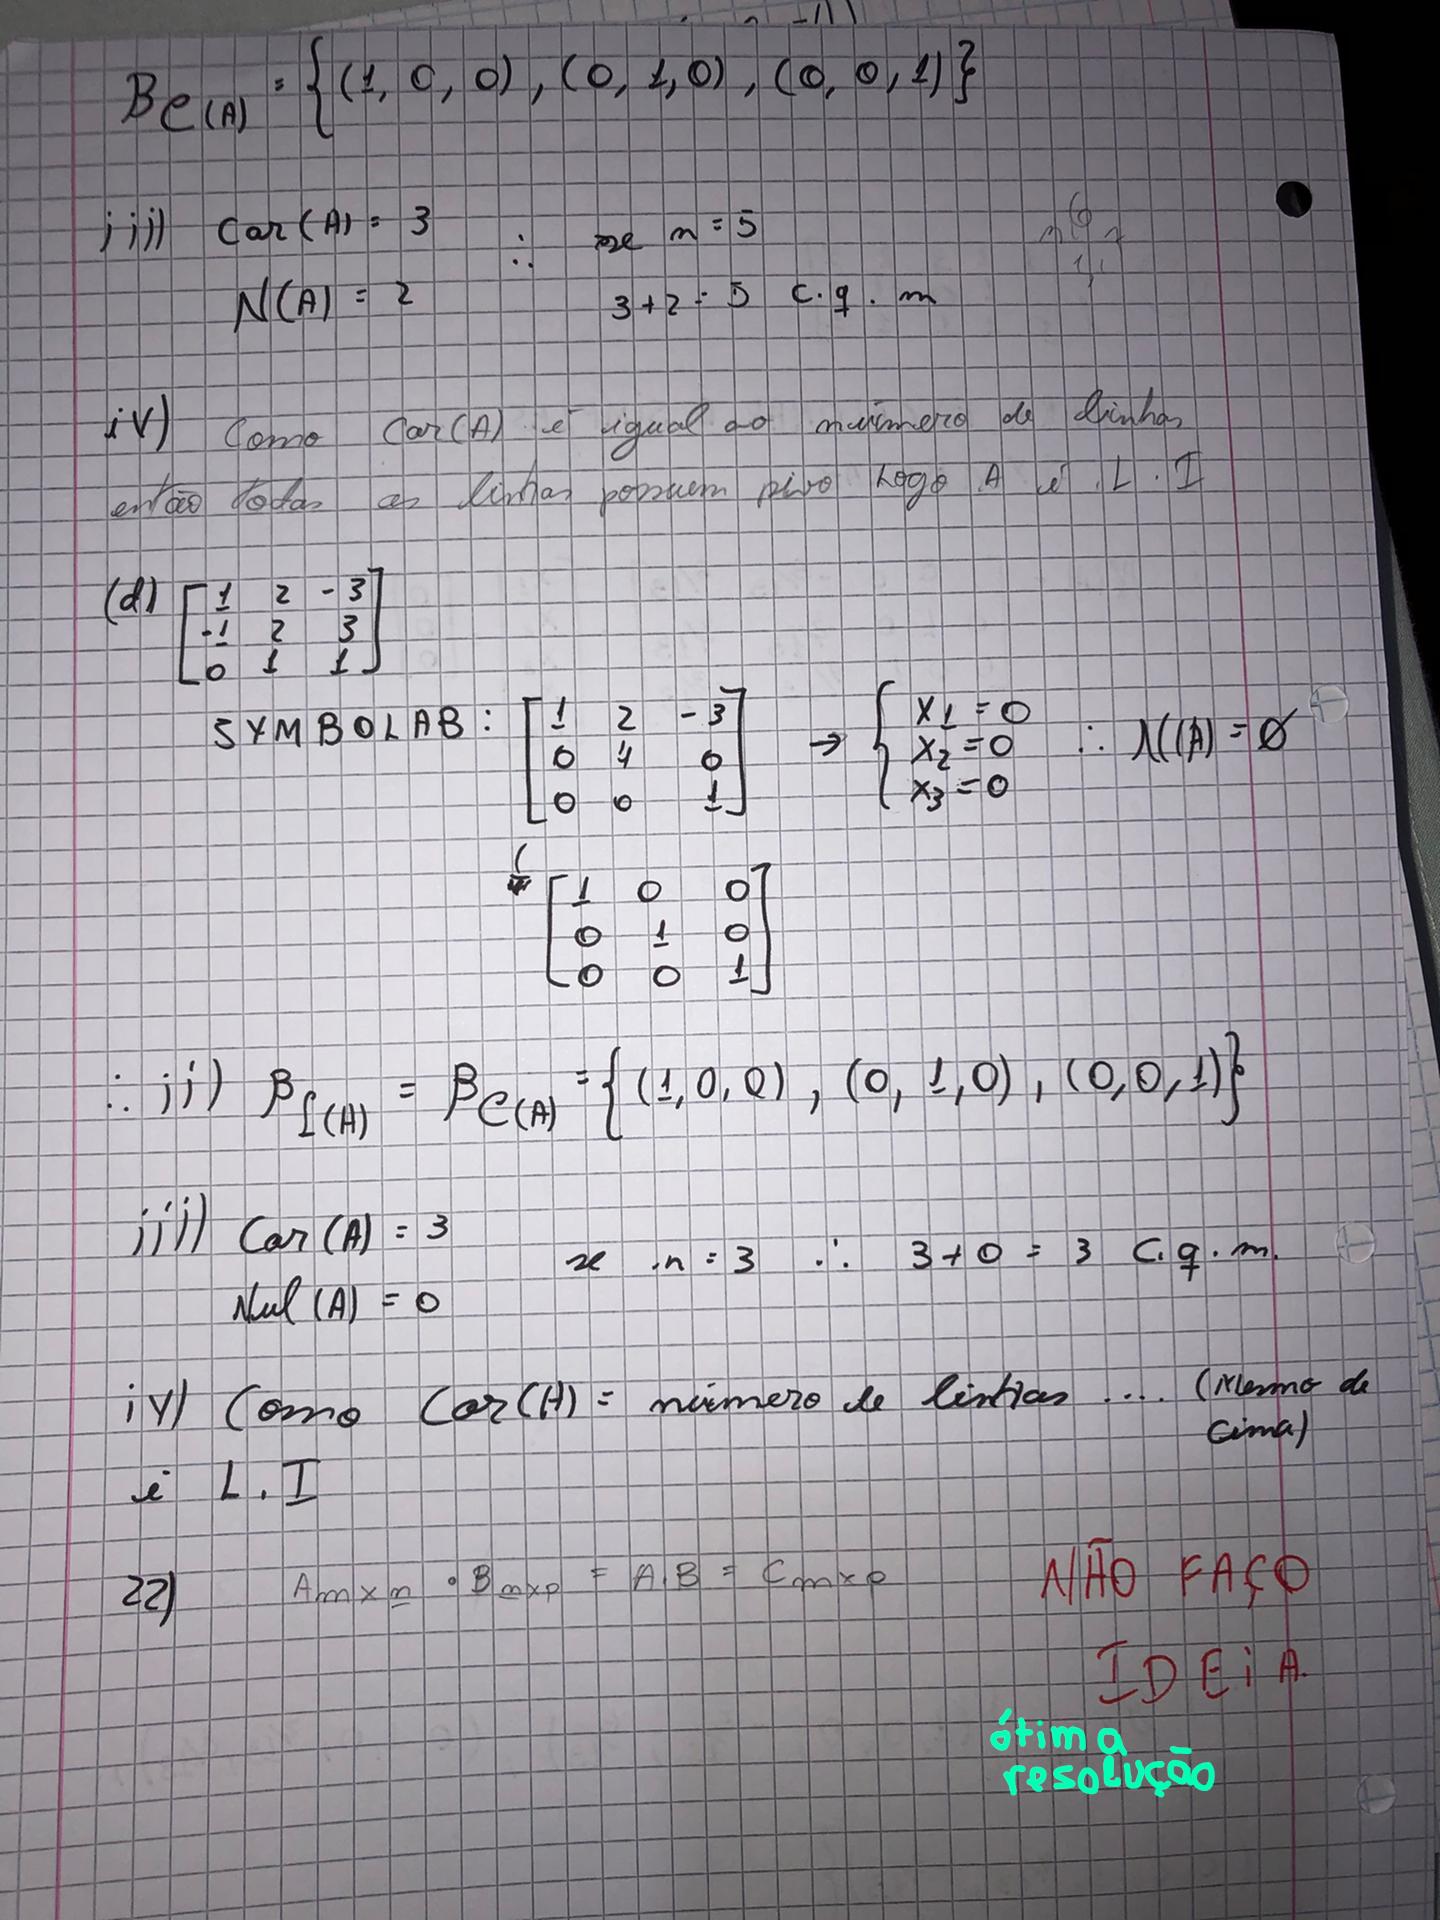 B C(A) = {(1, 0, 0), (0, 1, 0), (0, 0, 1)}
iii) Car(A) = 3 ∴ se n = 5
N(A) = 2 3+2 = 5 c.q.m
iv) Como Car(A) é igual ao número de linhas
então todas as linhas possuem pivo Logo A é L.I
(d) [1 2 -3
-1 2 3
0 1 1]
SYMBOLAB: [1 2 -3
0 4 0
0 0 1] → { x1 = 0
x2 = 0
x3 = 0 ∴ N(A) = ∅
[1 0 0
0 1 0
0 0 1]
∴ ii) β L(A) = β C(A) = {(1,0,0), (0,1,0), (0,0,1)}
iii) Car(A) = 3 se n = 3 ∴ 3+0 = 3 C.q.m.
Nul(A) = 0
iv) Como Car(A) = número de linhas .... (Mesmo de
cima)
é L.I
22) Amxn • Bnxp = A.B = Cmxp NÃO FAÇO
IDEiA.
ótima
resolução